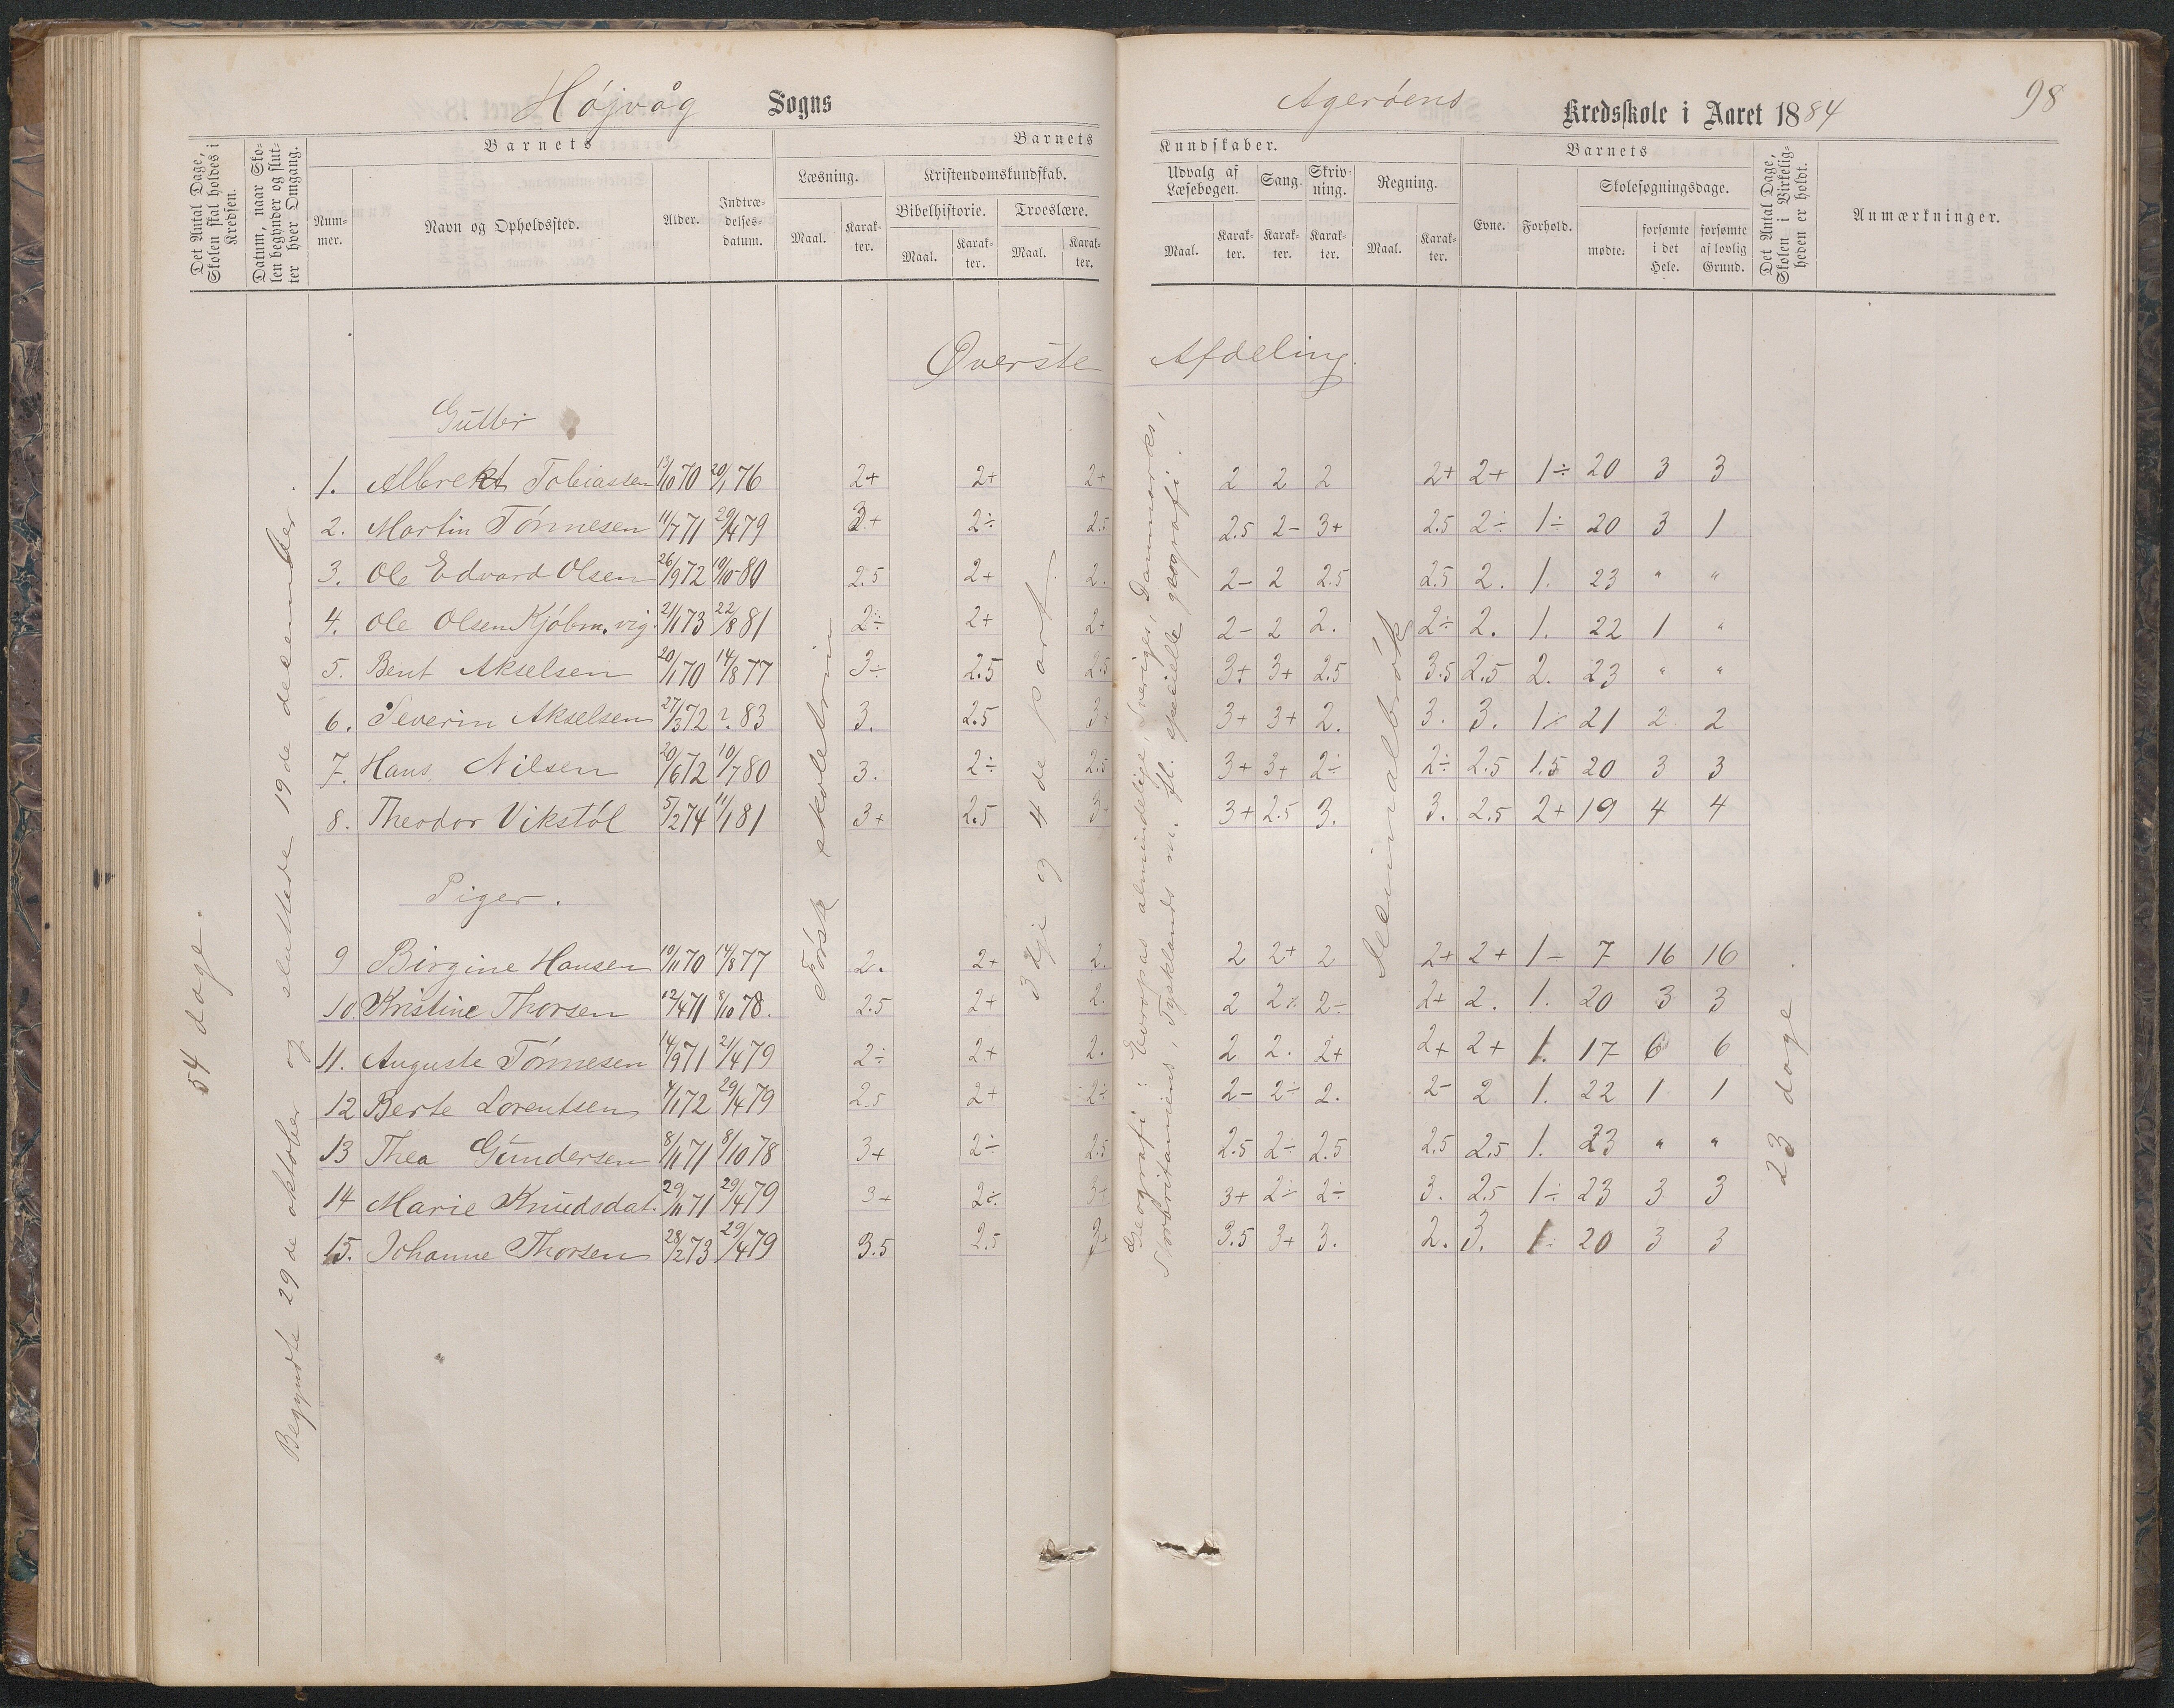 Højvåg Sogns
Agerøens Kredsskole i Aaret 1884
98
Det Antal Dage, Skolen skal holdes i Kredsen.
Datum, naar Skolen begynder og slutter hver Omgang.
Barnets
Nummer.
Navn og Opholdssted.
Alder.
Indtrædelsesdatum.
Barnets Kundskaber.
Læsning.
Maal.
Karakter.
Kristendomskundskab.
Bibelhistorie.
Maal.
Karakter.
Troeslære.
Maal.
Karakter.
Udvalg af Læsebogen.
Maal.
Karakter.
Sang.
Karakter.
Skrivning.
Karakter.
Regning.
Maal.
Karakter.
Barnets
Evne.
Forhold.
Skolesøgningsdage.
mødte:
forsømte i det Hele.
forsømte af lovlig Grund.
Det Antal Dage, Skolen i Virkeligheden er holdt.
Anmærkninger.
Øverste Afdeling.
54 dage.
Begyndte 29de oktober og sluttede 19de december.
Første skoletrin
3dje og 4de part.
Geografi: Evropas almindelige, Sveriges, Danmarks,
Storbritaniens, Tysklands m. fl. specielle geografi.
23 dage.
Gutter
1. Albrekt Tobiassen 13/10 70 20/1 76 2+ 2+ 2+ 2 2 2 2+ 2+ 1÷ 20 3 3
2. Martin Tönnesen 11/7 71 29/4 79 3+ 2÷ 2.5 2.5 2- 3+ 2.5 2÷ 1÷ 20 3 1
3. Ole Edvard Olsen 26/9 72 19/10 80 2.5 2+ 2. 2- 2 2.5 2.5 2. 1. 23 " "
4. Ole Olsen Kjöbm.vig. 21/1 73 22/8 81 2÷ 2+ 2+ 2- 2 2. 2÷ 2. 1. 22 1 "
5. Bent Akselsen 20/1 70 14/8 77 3÷ 2.5 2.5 3+ 3+ 2.5 3.5 2.5 2. 23 " "
6. Severin Akselsen 27/3 72 ? 83 3. 2.5 3+ 3+ 3+ 2. 3. 3. 1÷ 21 2 2
7. Hans Nilsen 20/6 72 10/7 80 3. 2÷ 2.5 3+ 3+ 2÷ 2÷ 2.5 1.5 20 3 3
8. Theodor Vikstöl 5/2 74 11/1 81 3+ 2.5 3+ 3+ 2.5 3. 3. 2.5 2+ 19 4 4
Piger.
9 Birgine Hansen 19/11 70 14/8 77 2. 2+ 2. 2 2+ 2 2+ 2+ 1÷ 7 16 16
10. Kristine Thorsen 12/4 71 8/10 78. 2.5 2+ 2. 2 2÷ 2÷ 2+ 2. 1. 20 3 3
11. Auguste Tönnesen 14/9 71 21/4 79 2÷ 2+ 2. 2 2. 2+ 2+ 2+ 1. 17 6 6
12 Berte Lorentsen 4/1 72 29/4 79 2.5 2+ 2÷ 2- 2÷ 2. 2- 2 1. 22 1 1
13 Thea Gundersen 8/11 71 8/10 78 3+ 2÷ 2.5 2.5 2÷ 2.5 2.5 2.5 1. 23 " "
14 Marie Knudsdat. 29/11 71 29/4 79 3+ 2÷ 3+ 3+ 2÷ 2÷ 3. 2.5 1÷ 23 3 3
15. Johanne Thorsen 28/2 73 29/4 79 3.5 2.5 3+ 3.5 3+ 3. 2. 3. 1÷ 20 3 3